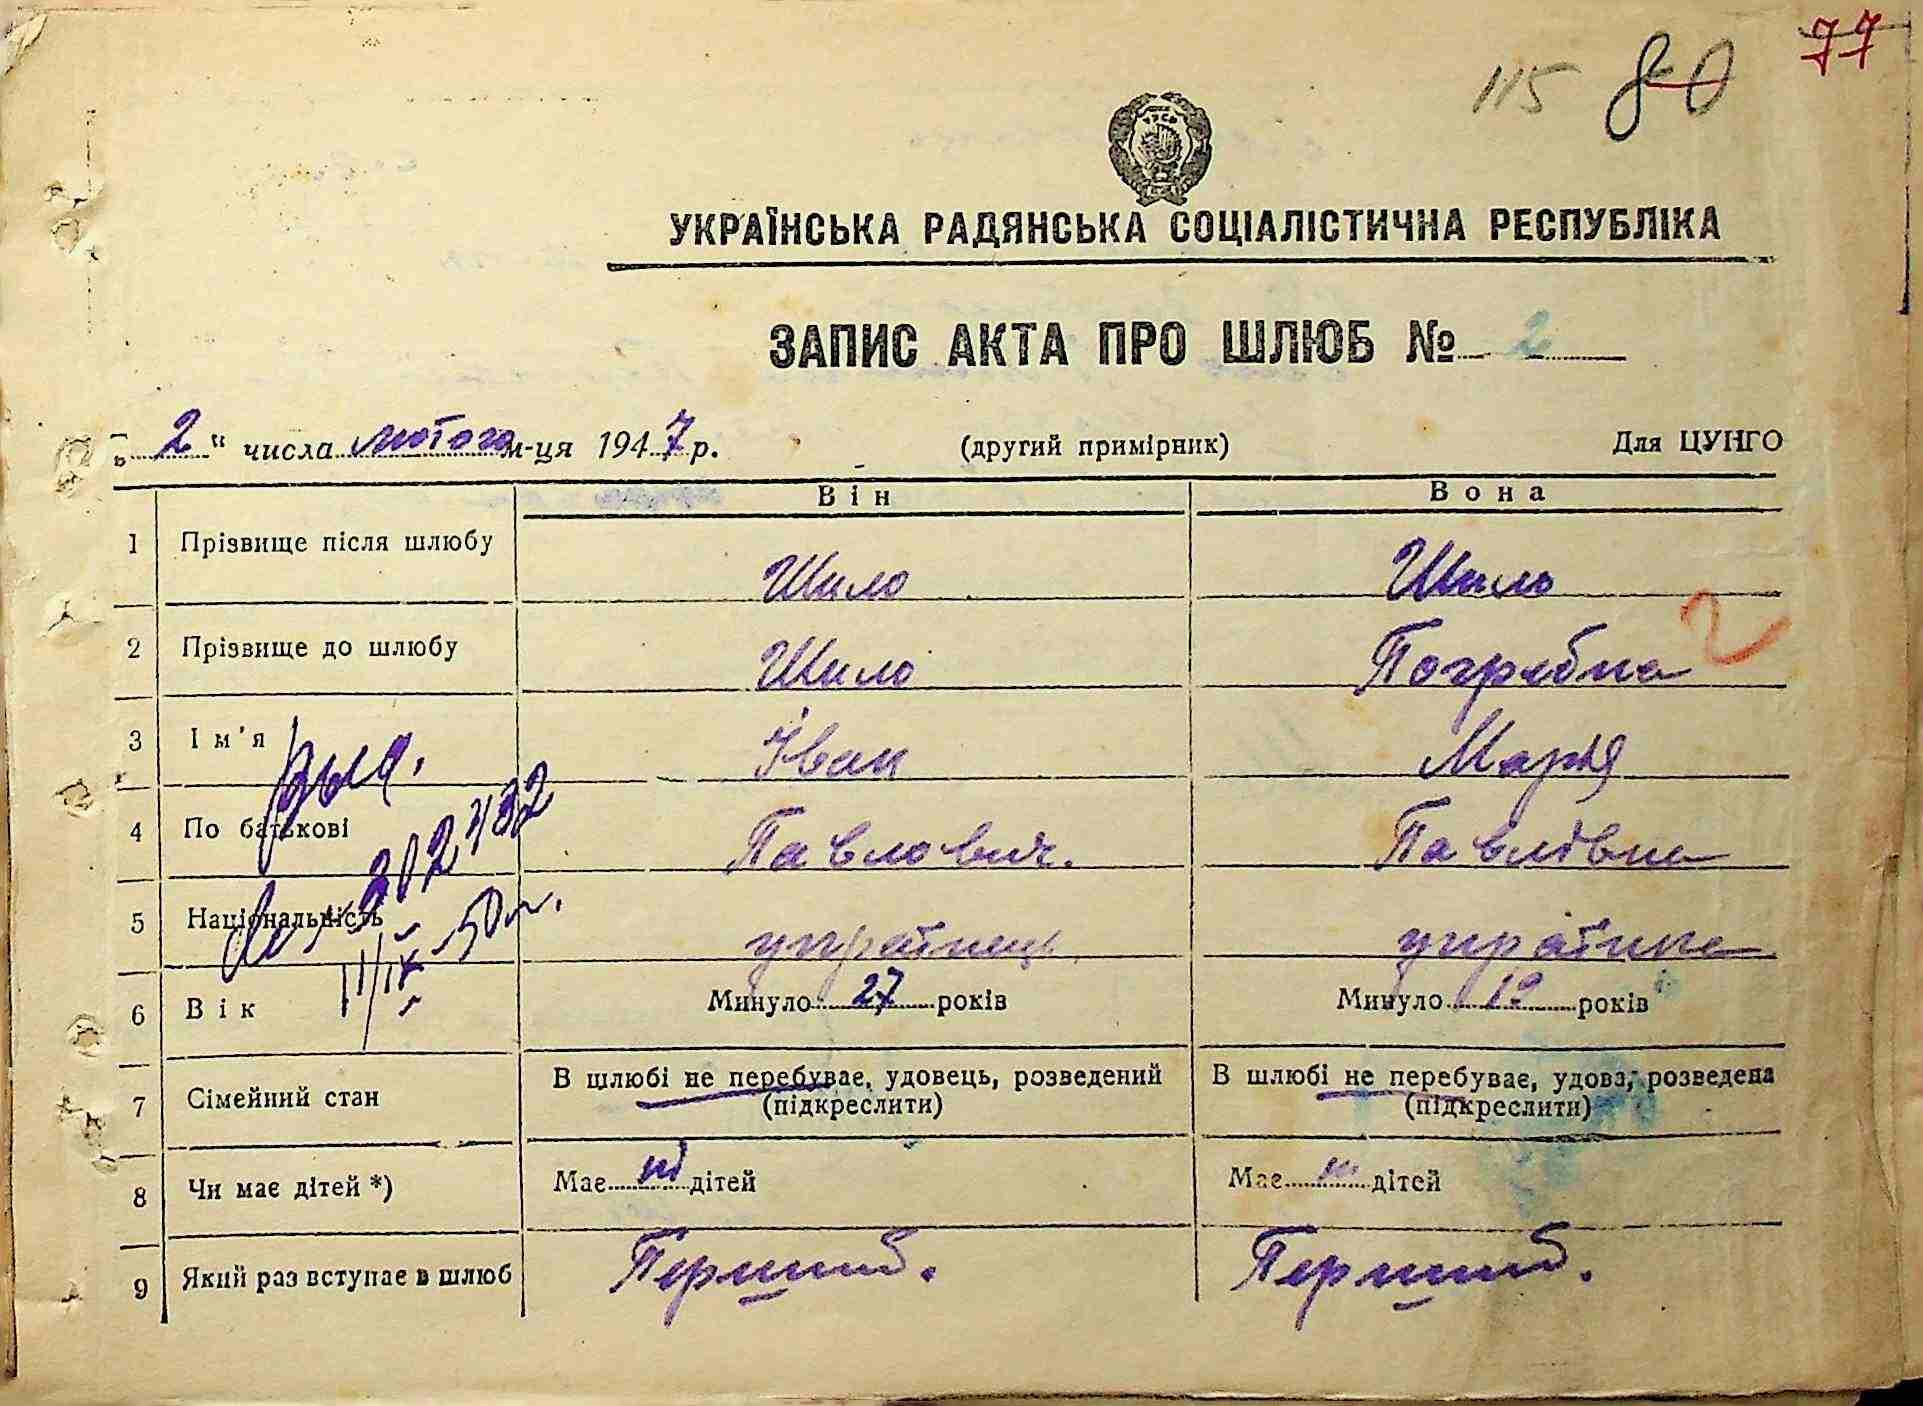 77
115 80
УКРАЇНСЬКА РАДЯНСЬКА СОЦІАЛІСТИЧНА РЕСПУБЛІКА
ЗАПИС АКТА ПРО ШЛЮБ № 2
„2“ числа лютого м-ця 1947 р. (другий примірник) Для ЦУНГО
Він Вона
1 Прізвище після шлюбу Шило Шило
2 Прізвище до шлюбу Шило Погрібна 2
3 Ім'я Іван Марія
4 По батькові Павлович. Павлівна
5 Національність українець українка
6 Вік Минуло 27 років Минуло 19 років
7 Сімейний стан В шлюбі не перебуває, удовець, розведений В шлюбі не перебуває, удова, розведена
(підкреслити) (підкреслити)
8 Чи має дітей *) Має ні дітей Має ні дітей
9 Який раз вступає в шлюб Перший. Перший.